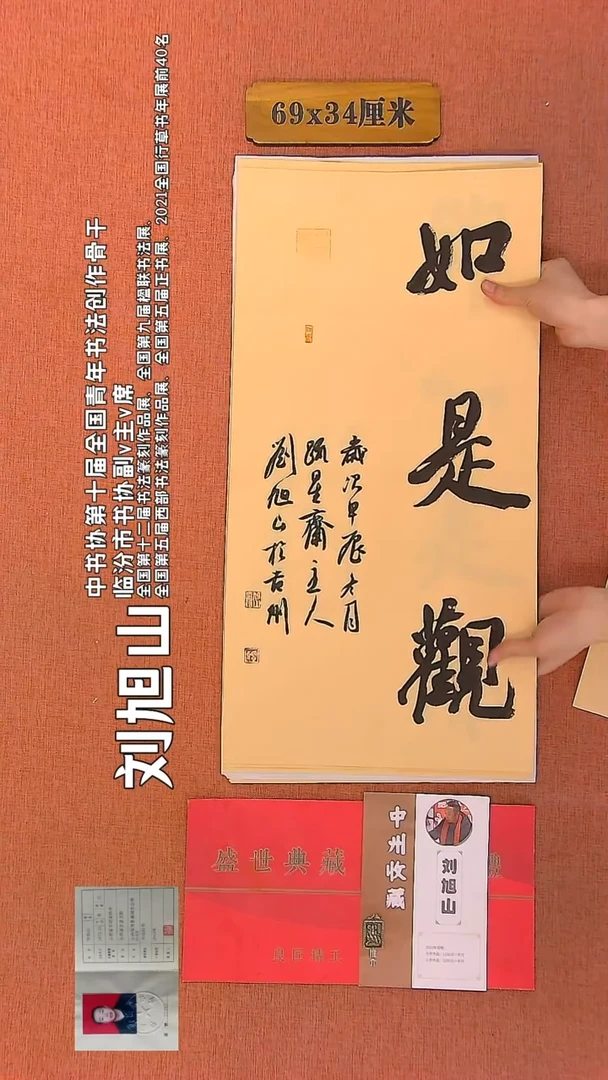 69x34厘米
中书协第十届全国青年书法创作骨干
临汾市书协副v主v席
全国第十二届书法篆刻作品展、全国第九届楹联书法展、
全国第五届西部书法篆刻作品展、全国第五届正书展、2021全国行草书年展前40名
刘旭山
如是觀
歲次甲辰才月
疏星齋主人
劉旭山於古
盛世典藏
中州收藏
刘旭山